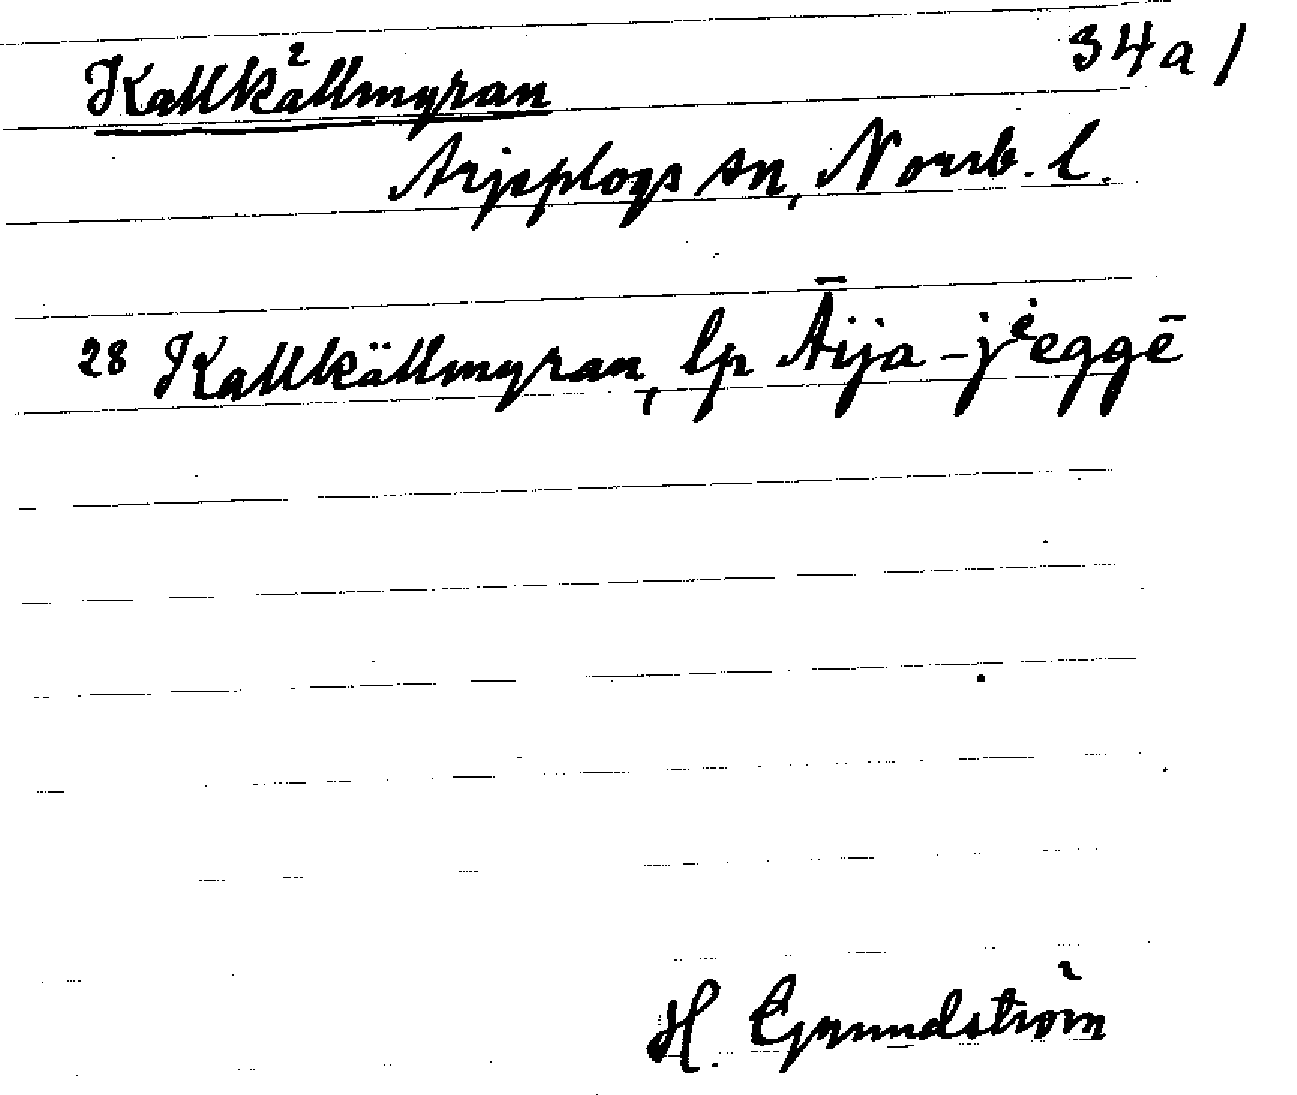 34a1
Kallkällmyran
Arjeplogs sn, Norrb. l.
28 Kallkällmyran, lp Āija-jᵉeggē
H. Grundström